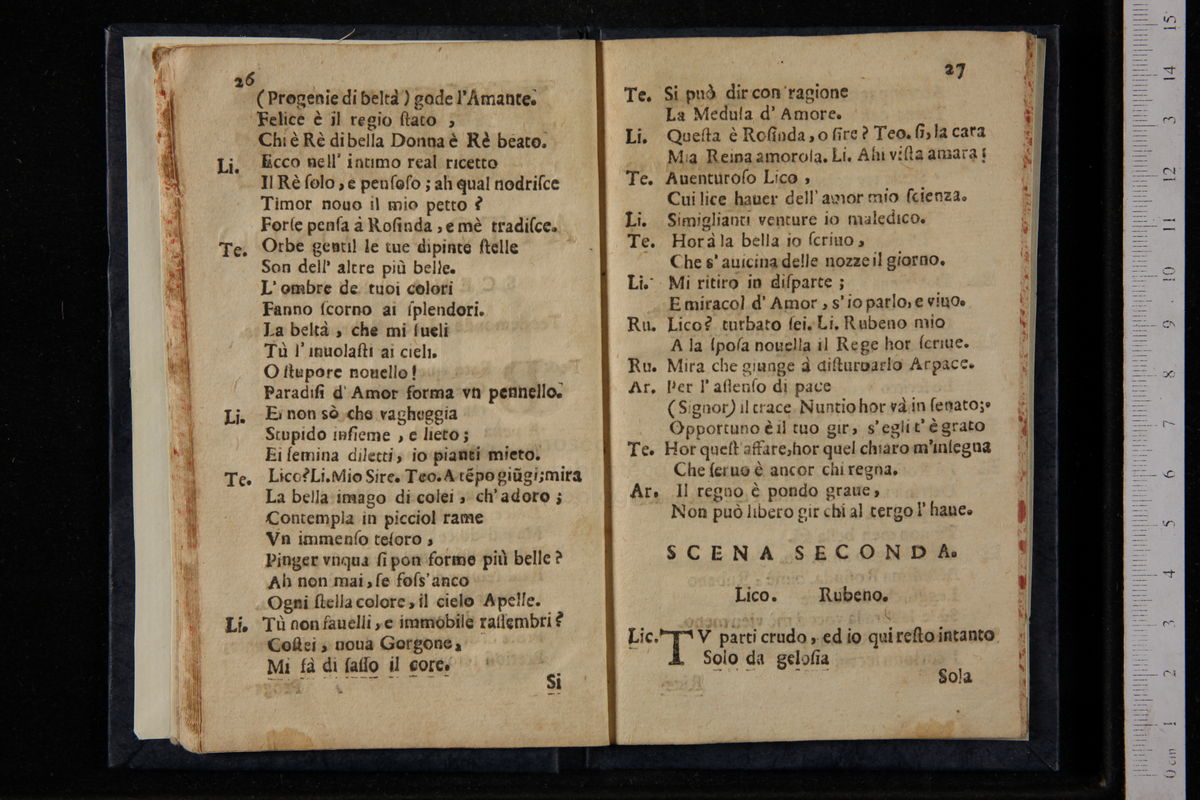 26
(Progenie di beltà) gode l'Amante.
Felice è il regio ſtato ,
Chi è Rè di bella Donna è Rè beato.
Li. Ecco nell' intimo real ricetto
Il Rè ſolo, e penſoſo ; ah qual nodriſce
Timor nouo il mio petto ?
Forſe penſa à Roſinda, e mè tradiſce.
Te. Orbe gentil le tue dipinte ſtelle
Son dell' altre più belle.
L' ombre de tuoi colori
Fanno ſcorno ai ſplendori.
La beltà , che mi ſueli
Tù l' inuolaſti ai cieli.
O ſtupore nouello!
Paradiſi d' Amor forma vn pennello.
Li. Ei non sò che vagheggia
Stupido inſieme , e lieto ;
Ei ſemina diletti, io pianti mieto.
Te. Lico? Li. Mio Sire. Teo. A tẽpo giũgi; mira
La bella imago di colei , ch' adoro ;
Contempla in picciol rame
Vn immenſo teſoro ,
Pinger vnqua ſi pon forme più belle ?
Ah non mai, ſe foſs'anco
Ogni ſtella colore, il cielo Apelle.
Li. Tù non fauelli, e immobile raſſembri ?
Coſtei , noua Gorgone,
Mi fà di ſaſſo il core.
Si
27
Te. Si può dir con ragione
La Meduſa d' Amore.
Li. Queſta è Roſinda, o ſire ? Teo. ſì, la cara
Mia Reina amoroſa. Li. Ahi viſta amara !
Te. Auenturoſo Lico ,
Cui lice hauer dell' amor mio ſcienza.
Li. Simiglianti venture io maledico.
Te. Hor à la bella io ſcriuo ,
Che s' auicina delle nozze il giorno.
Li. Mi ritiro in diſparte ;
E miracol d' Amor , s' io parlo, e viuo.
Ru. Lico ? turbato ſei. Li. Rubeno mio
A la ſpoſa nouella il Rege hor ſcriue.
Ru. Mira che giunge à diſturbarlo Arpace.
Ar. Per l' aſſenſo di pace
(Signor) il trace Nuntio hor và in ſenato;
Opportuno è il tuo gir, s' egli t' è grato
Te. Hor queſt' affare, hor quel chiaro m'inſegna
Che ſeruo è ancor chi regna.
Ar. Il regno è pondo graue ,
Non può libero gir chi al tergo l' haue.
SCENA SECONDA.
Lico. Rubeno.
Lic. TV parti crudo, ed io qui reſto intanto
Solo da geloſia
Sola
0 cm 1 2 3 4 5 6 7 8 9 10 11 12 13 14 15